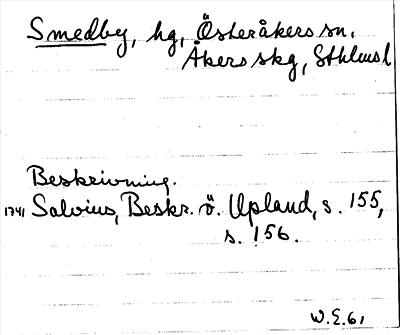 Smedby, hg, Österåkers sn.
Åkers skg, Sthlmsl
Beskrivning.
1741 Salvius, Beskr. ö. Upland, s. 155,
s. 156.
W.E.61